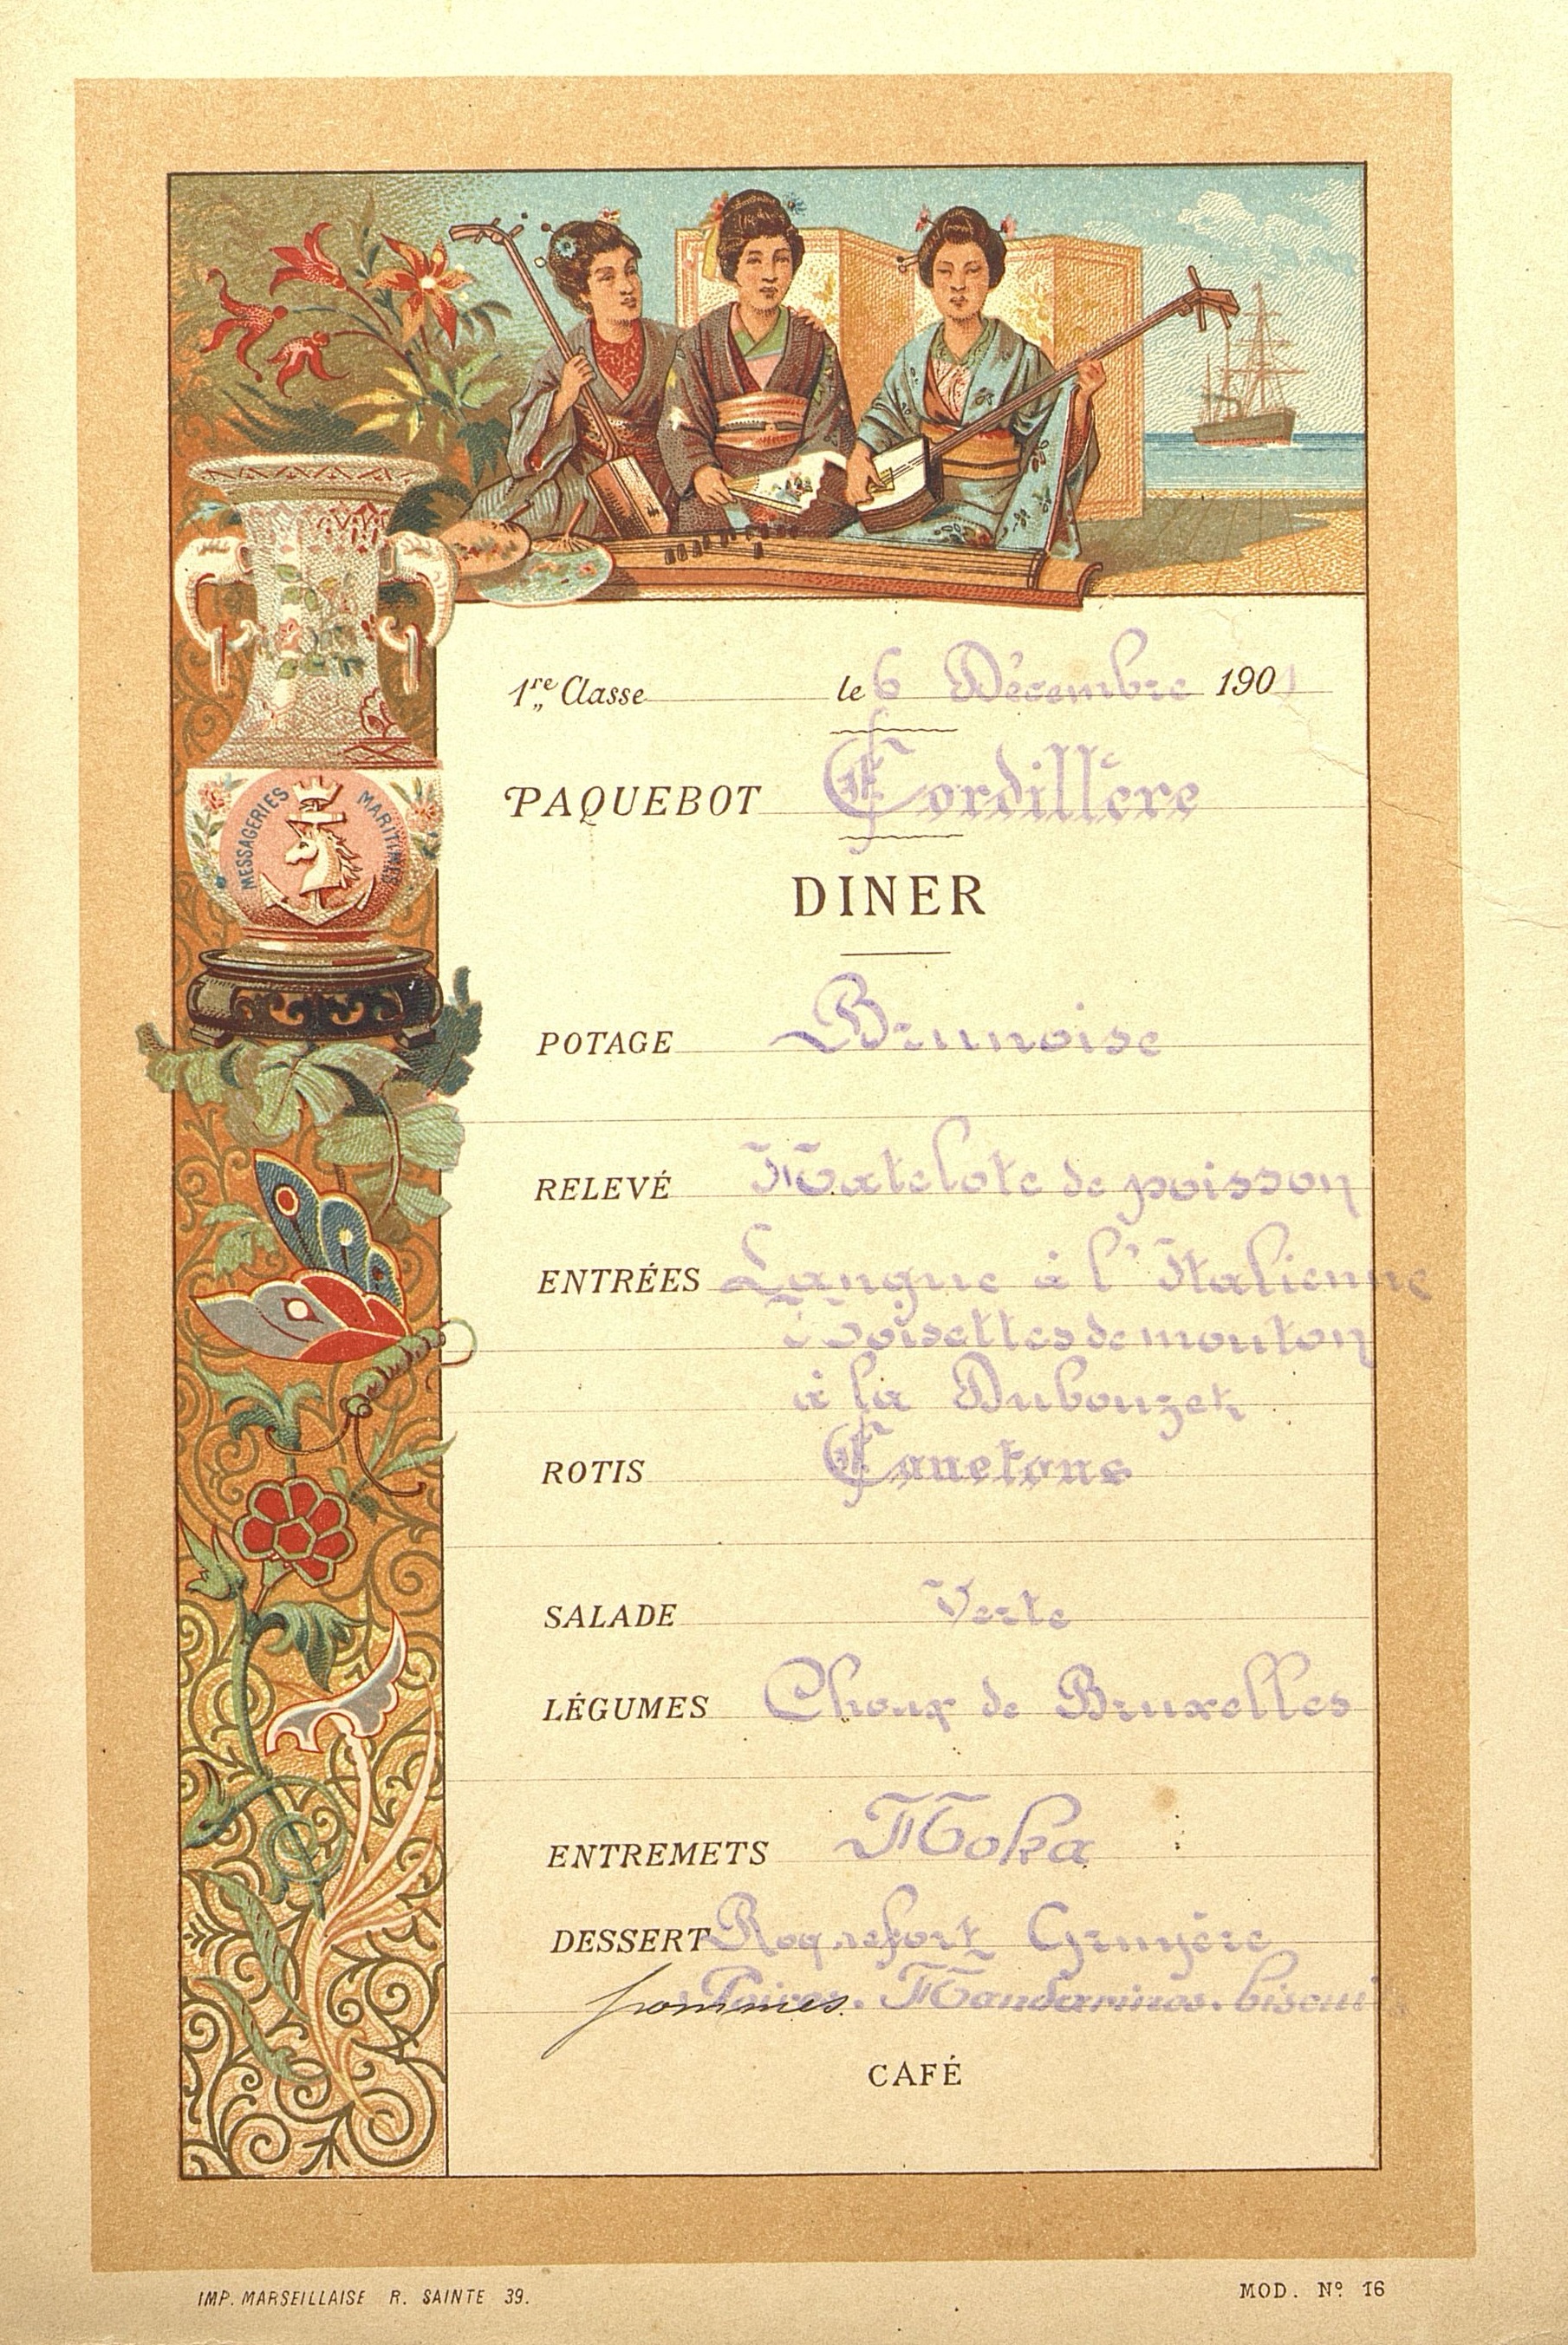 1re Classe le 6 Décembre 1901
PAQUEBOT Cordillère
MESSAGERIES MARITIMES
DINER
POTAGE Brunoise
RELEVÉ Matelote de poisson
ENTRÉES Langue à l'Italienne
Noisettes de mouton
à la Dubouzet
ROTIS Canetons
SALADE Verte
LÉGUMES Choux de Bruxelles
ENTREMETS Moka
DESSERT Roquefort Gruyère
pommes. Mandarines. biscuits
CAFÉ
IMP. MARSEILLAISE R. SAINTE 39.
MOD. Nº 16